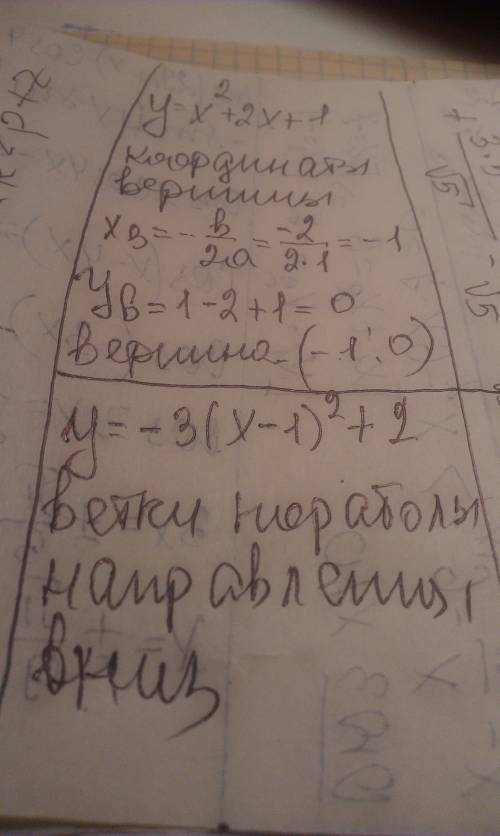 y=x²+2x+1
координаты
вершины
xв=-b/2a=-2/2·1=-1
yв=1-2+1=0
вершина-(-1;0)
y=-3(x-1)²+2
ветки параболы
направлены,
вниз